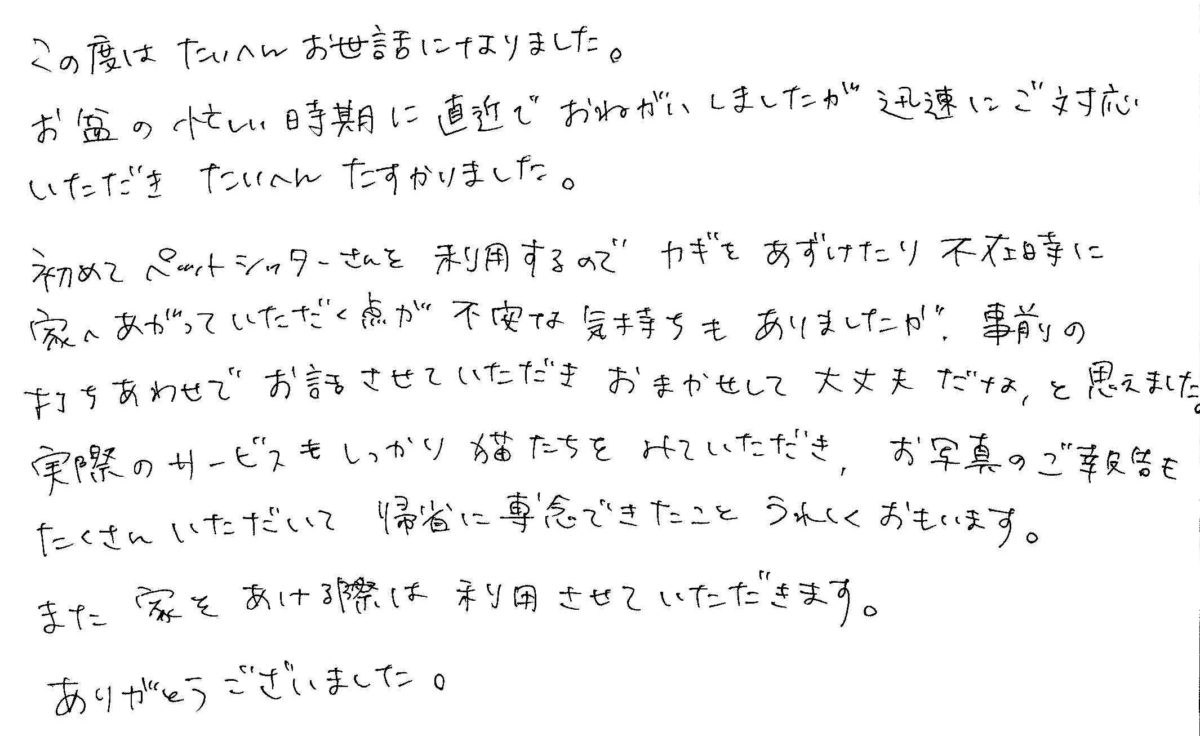 この度は たいへん お世話になりました。
お盆の忙しい時期に直近でおねがいしましたが迅速にご対応
いただき たいへん たすかりました。
初めてペットシッターさんを利用するので カギをあずけたり不在時に
家へあがっていただく点が不安な気持ちもありましたが、事前の
打ちあわせでお話させていただきおまかせして大丈夫だな、と思えました。
実際のサービスもしっかり猫たちをみていただき、お写真のご報告も
たくさんいただいて 帰省に専念できたこと うれしくおもいます。
また 家をあける際は 利用させていただきます。
ありがとうございました。